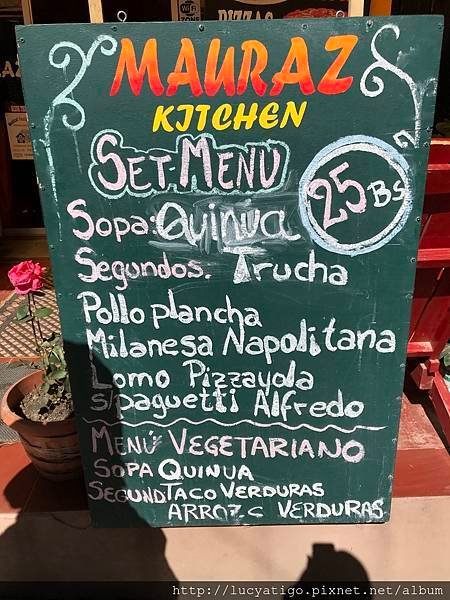 PIZZAS
MAURAZ
KITCHEN
SET-MENU
25 Bs
Sopa: Quinua
Segundos. Trucha
Pollo plancha
Milanesa Napolitana
Lomo Pizzayola
s/paguetti Alfredo
MENÚ VEGETARIANO
SOPA QUINUA
SEGUND TACO VERDURAS
ARROZ C VERDURAS
http://lucyatigo.pixnet.net/album